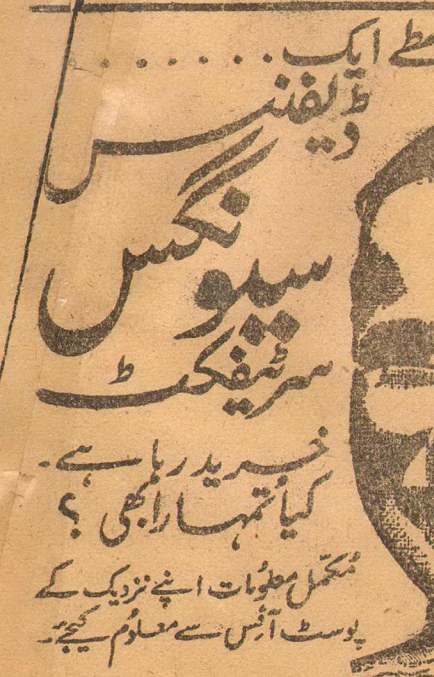 ایک . . . . . . . .
ڈیفنس
سیونگس
سرٹیفکٹ
خرید رہا ہے۔
کیا تمہارا بھی ؟
مکمّل معلومات اپنے نزدیک کے
پوسٹ آفس سے معلوم کیجئے۔